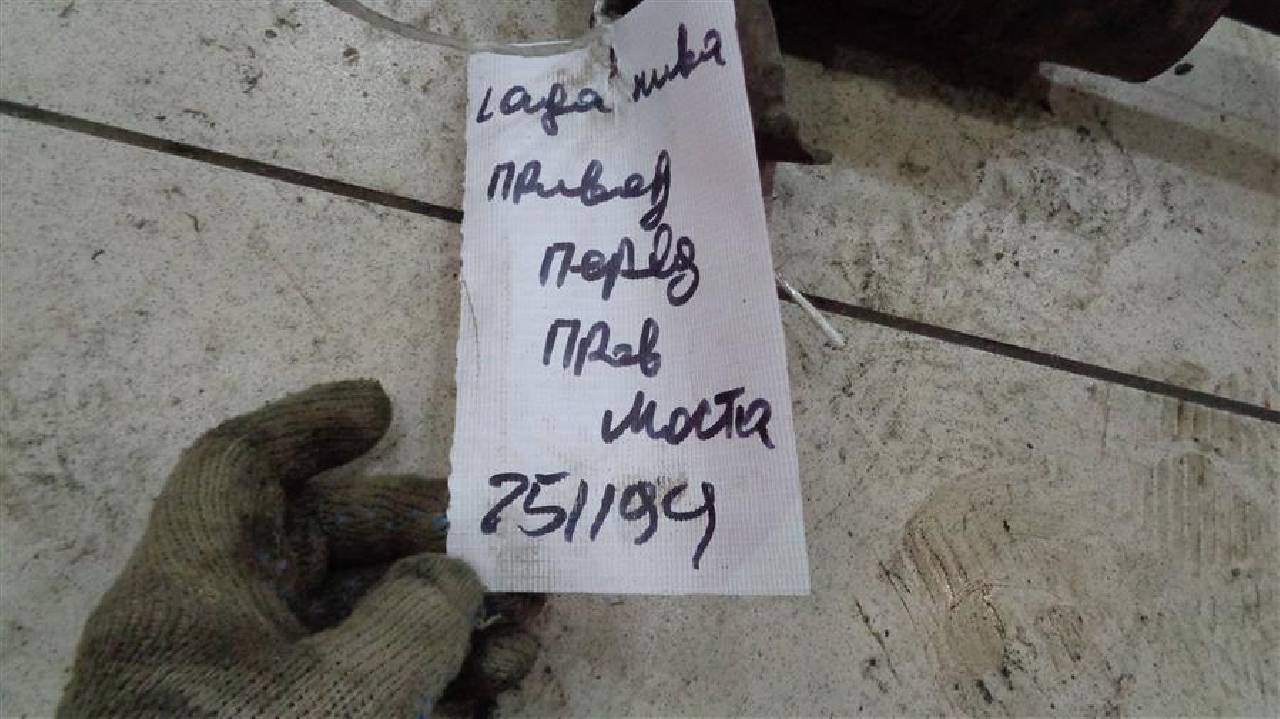 Lада нива
привод
перед
прав
моста
251194